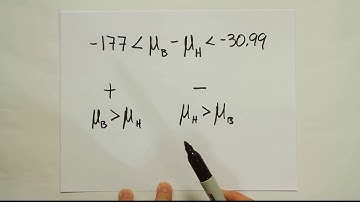 -177 < μ_B - μ_H < -30.99
+ −
μ_B > μ_H μ_H > μ_B